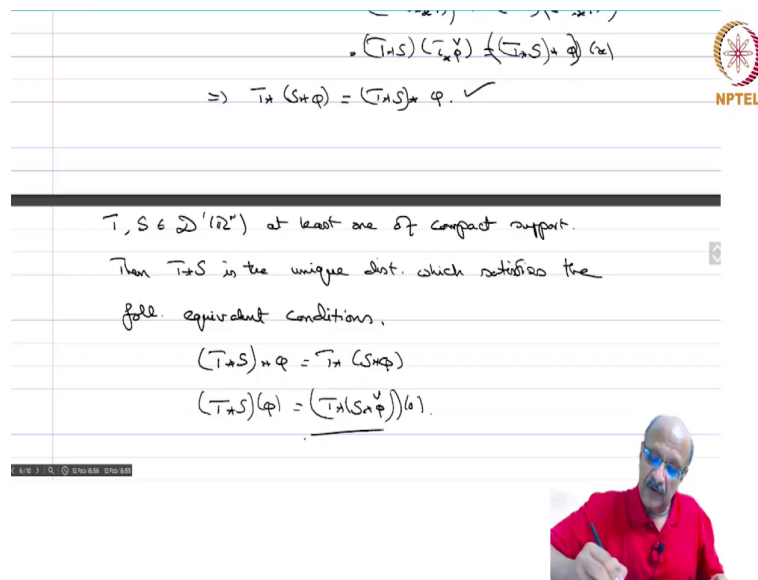 = (T*S)(τ_x φ̌) = ((T*S)*φ)(x)
NPTEL
=> T*(S*φ) = (T*S)*φ. ✓
T, S ∈ D'(ℝⁿ) at least one of compact support.
Then T*S is the unique dist. which satisfies the
foll. equivalent conditions.
(T*S)*φ = T*(S*φ)
(T*S)(φ) = (T*(S*φ̌))(0).
12 Feb 16:58 12 Feb 16:59